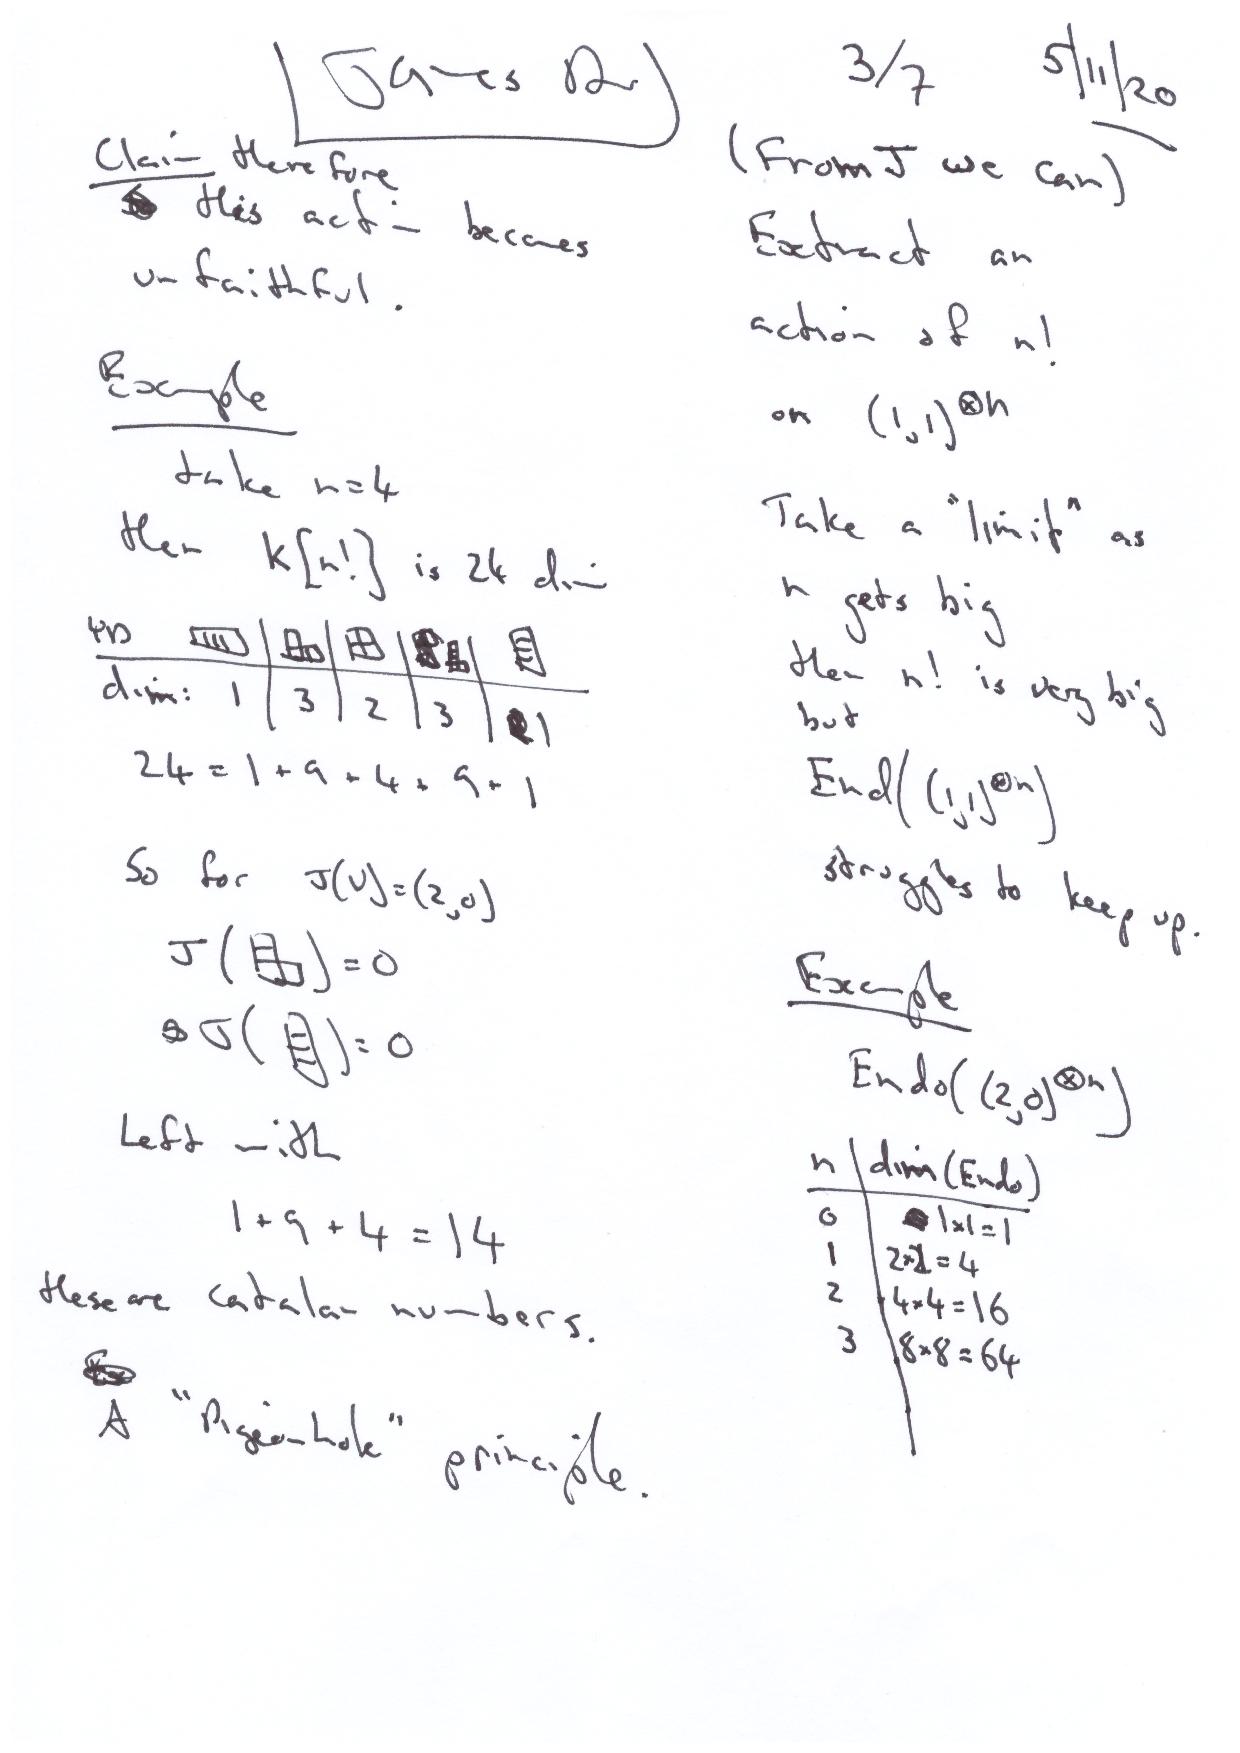 James
3/7 5/11/20
Claim therefore
this action becomes
unfaithful.
Example
take n=4
then K[n!] is 24 dim
YD
dim: 1 | 3 | 2 | 3 | 1
24 = 1 + 9 + 4 + 9 + 1
So for J(V)=(2,0)
J( )=0
J( )=0
Left with
1+9+4=14
these are catalan numbers.
A "Pigeonhole" principle.
(From J we can)
Extract an
action of n!
on (1,1)^⊗n
Take a "limit" as
n gets big
then n! is very big
but
End((1,1)^⊗n)
struggles to keep up.
Example
Endo((2,0)^⊗n)
n | dim(Endo)
0 | 1×1=1
1 | 2×2=4
2 | 4×4=16
3 | 8×8=64